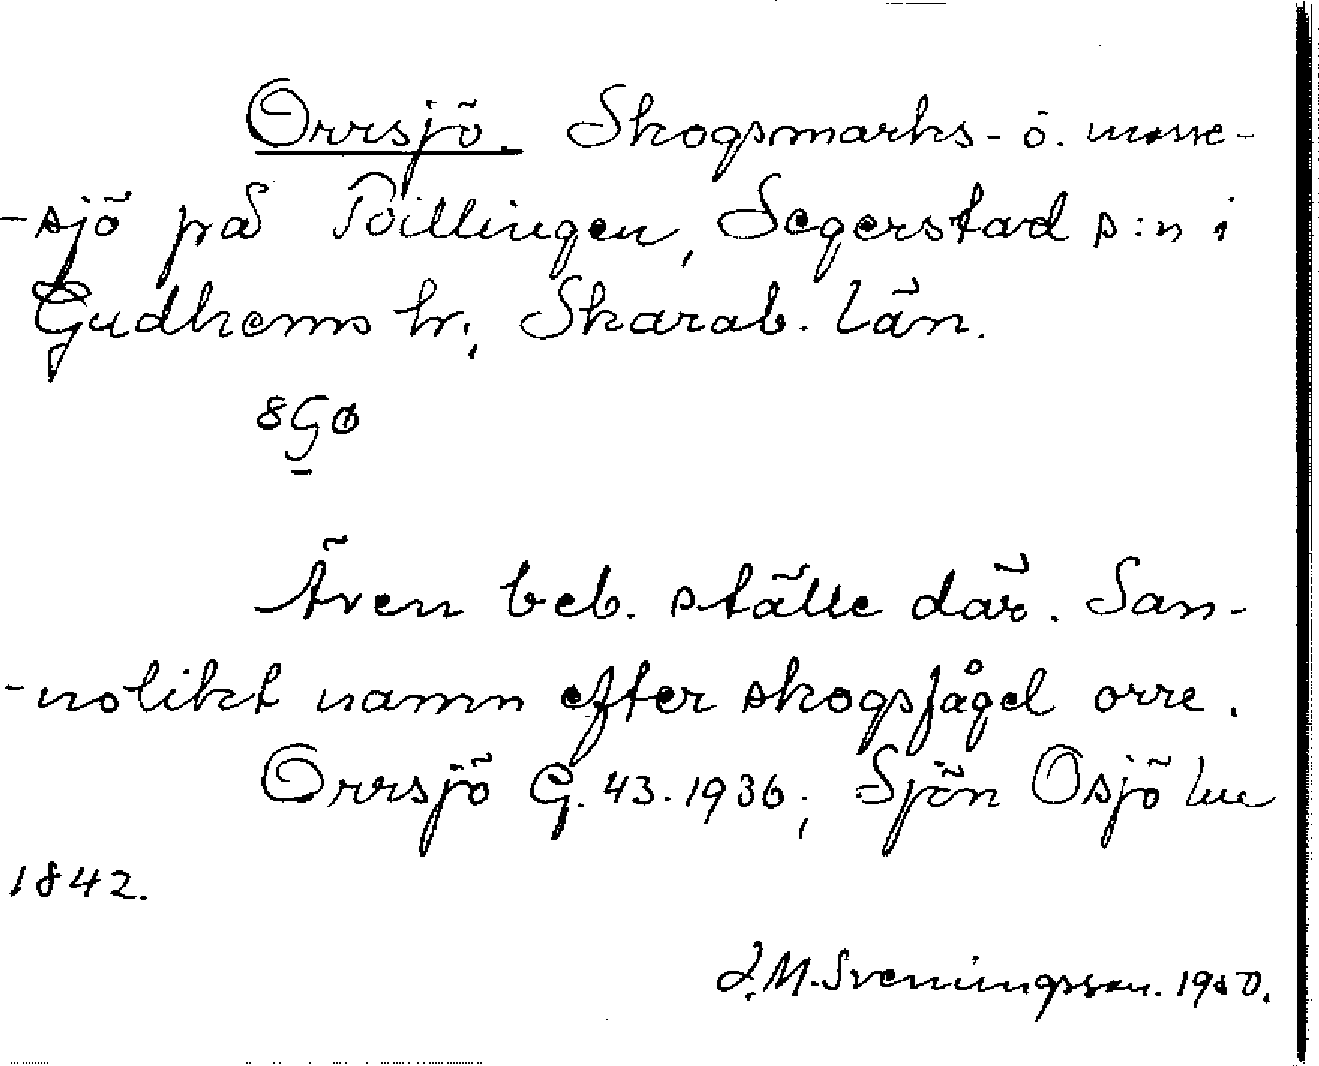 Orrsjö. Skogsmarks- o. mosse-
-sjö på Billingen, Segerstad s:n i
Gudhems hr, Skarab. län.
8G0
Även beb. ställe där. San-
-nolikt namn efter skogsfågel orre.
Orrsjö G. 43. 1936; Sjön Osjö
1842.
J. M. Sveningsson. 1950.